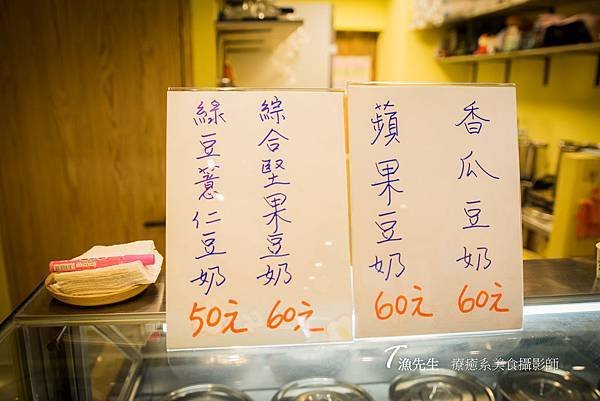 香瓜豆奶
60元
蘋果豆奶
60元
綜合堅果豆奶
60元
綠豆薏仁豆奶
50元
漁先生 療癒系美食攝影師